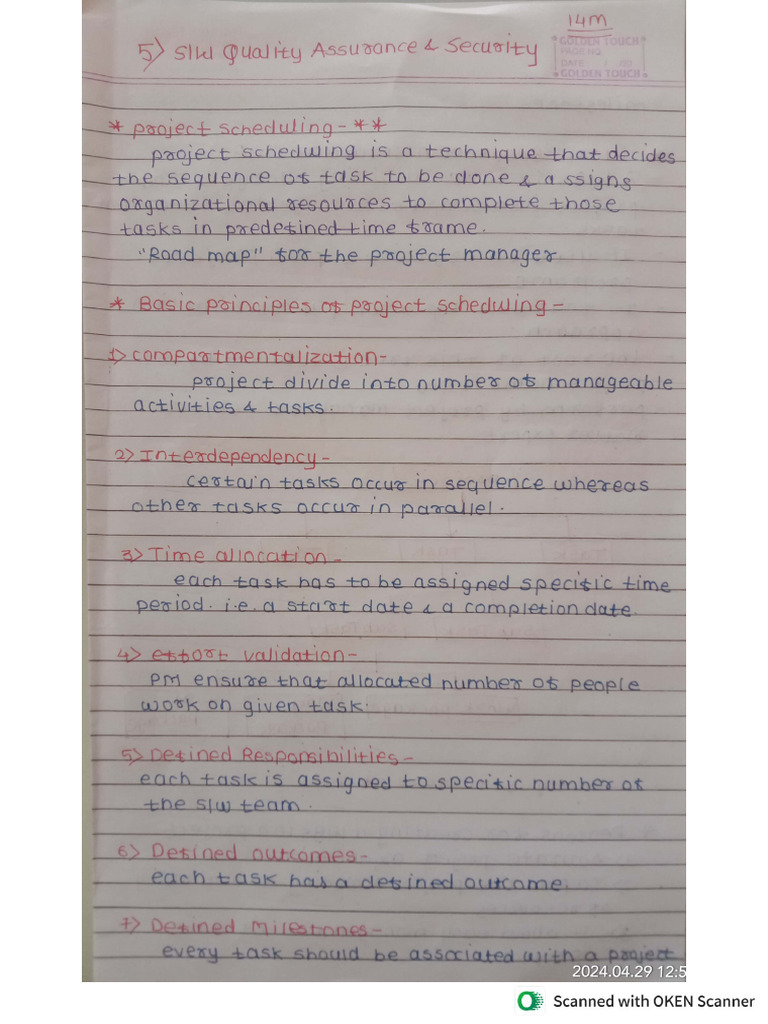 14M
5) S/W Quality Assurance & Security
GOLDEN TOUCH
PAGE NO.
DATE / /20
GOLDEN TOUCH
* project scheduling - **
project scheduling is a technique that decides
the sequence of task to be done & assigns
organizational resources to complete those
tasks in predefined time frame.
"Road map" for the project manager
* Basic principles of project scheduling -
1) compartmentalization -
project divide into number of manageable
activities & tasks.
2) Interdependency -
certain tasks occur in sequence whereas
other tasks occur in parallel.
3) Time allocation -
each task has to be assigned specific time
period. i.e. a start date & a completion date.
4) effort validation -
PM ensure that allocated number of people
work on given task.
5) Defined Responsibilities -
each task is assigned to specific number of
the S/W team.
6) Defined outcomes -
each task has a defined outcome.
7) Defined Milestones -
every task should be associated with a project
2024.04.29 12:5
Scanned with OKEN Scanner